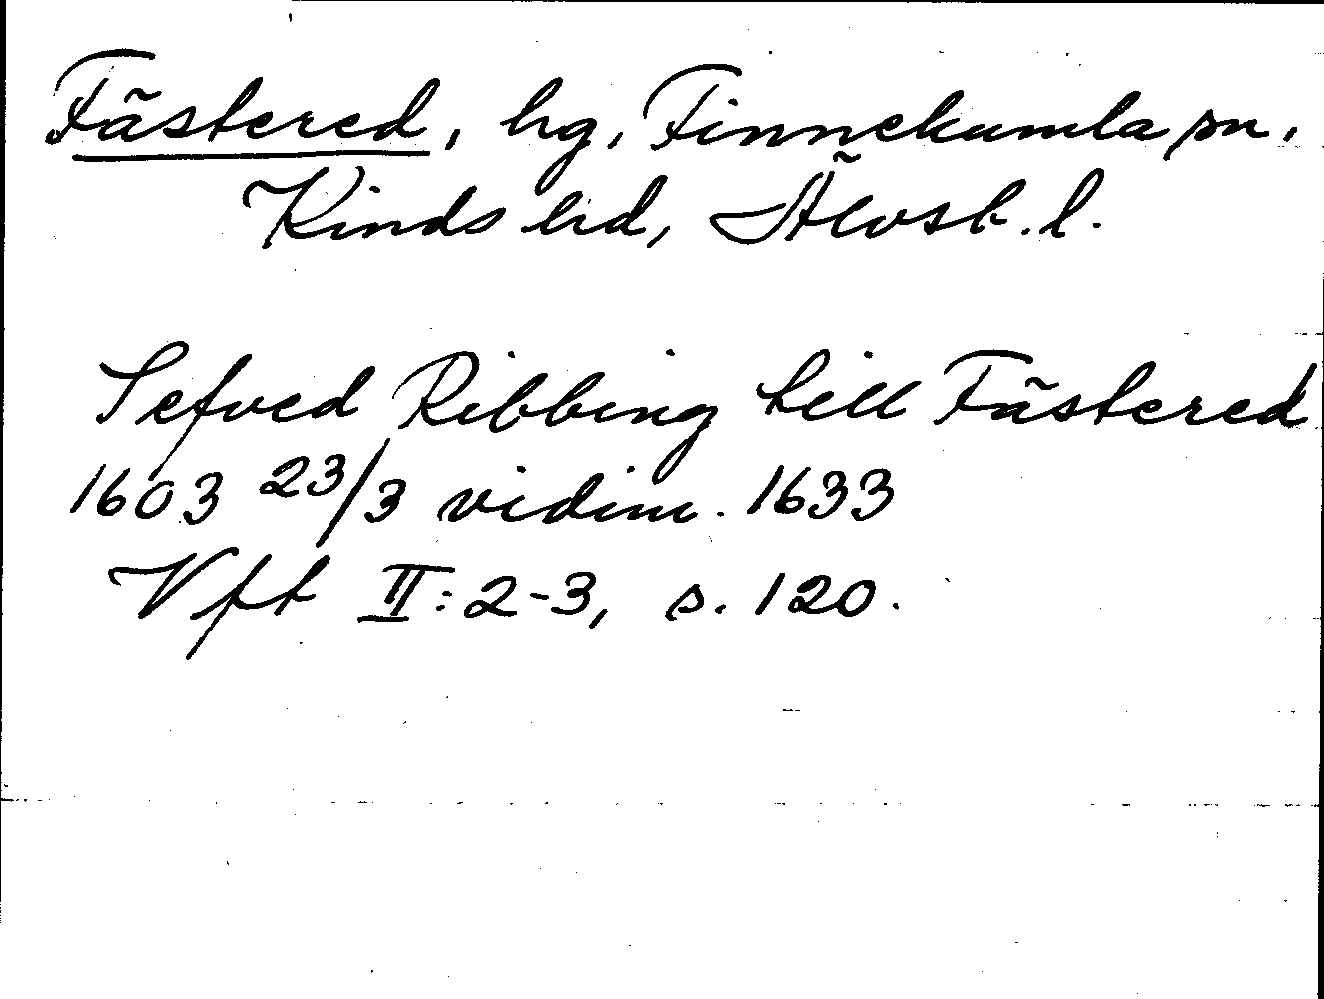 Fästered, hg, Finnekumla sn.
Kinds hd, Älvsb. l.
Sefved Ribbing till Fästered
1603 23/3 vidim. 1633
Vft II: 2-3, s. 120.